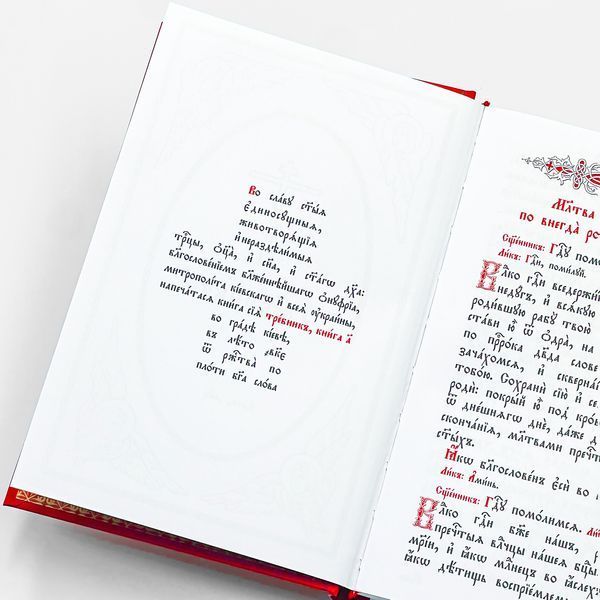 Во славу ст҃ыѧ
Є҆диносꙋщныѧ,
животворѧщїѧ
и҆ нераздѣлимыѧ
трⷪ҇цы, ѻ҆ц҃а̀, и҆ сн҃а, и҆ ст҃а́гѡ дх҃а:
благослове́нїемъ бл҃же́ннѣйшагѡ ѻ҆нꙋ́фрїа,
митрополі́та кі́евскагѡ и҆ всеѧ̀ ᲂу҆краи́ны,
напеча́тасѧ кни́га сїѧ̀ тре́бникъ, кни́га а҃
во гра́дѣ кі́евѣ,
въ лѣ́то
ѿ ржⷭ҇тва̀ по
пло́ти бг҃а сло́ва
Мл҃тва
по внегда̀
Сщ҃е́нникъ: Гдⷭ҇ꙋ
Ли́къ: Гдⷭ҇и, поми́лꙋй.
Влⷣко гдⷭ҇и вседержи
недꙋ́гъ, и҆ всѧ́кꙋю
роди́вшꙋю рабꙋ̀ твою̀
ста́ви ю҆̀ ѿ ѻ҆дра̀, на
по прⷪ҇ро́ка дв҃да сло́ве
зача́хомсѧ, и҆ скве́рна
тобо́ю. Сохранѝ сїю̀ и҆ се
роди̂: покры́й ю҆̀ под̾ кро́в
ѿ дне́шнѧгѡ днѐ, да́же д
сконча́нїѧ, мл҃твами пречⷭ҇т
ст҃ы́хъ.
Ꙗ҆́кѡ благослове́нъ є҆сѝ во
Ли́къ: А҆ми́нь.
Сщ҃е́нникъ: Гдⷭ҇ꙋ помо́лимсѧ.
Влⷣко гдⷭ҇и бж҃е на́шъ,
пречⷭ҇тыѧ влⷣчцы на́шеѧ бцⷣы
мр҃і́и, и҆ ꙗ҆́кѡ младе́нецъ во ꙗ҆́слех
ꙗ҆́кѡ дѣ́тищь воспрїе́млем